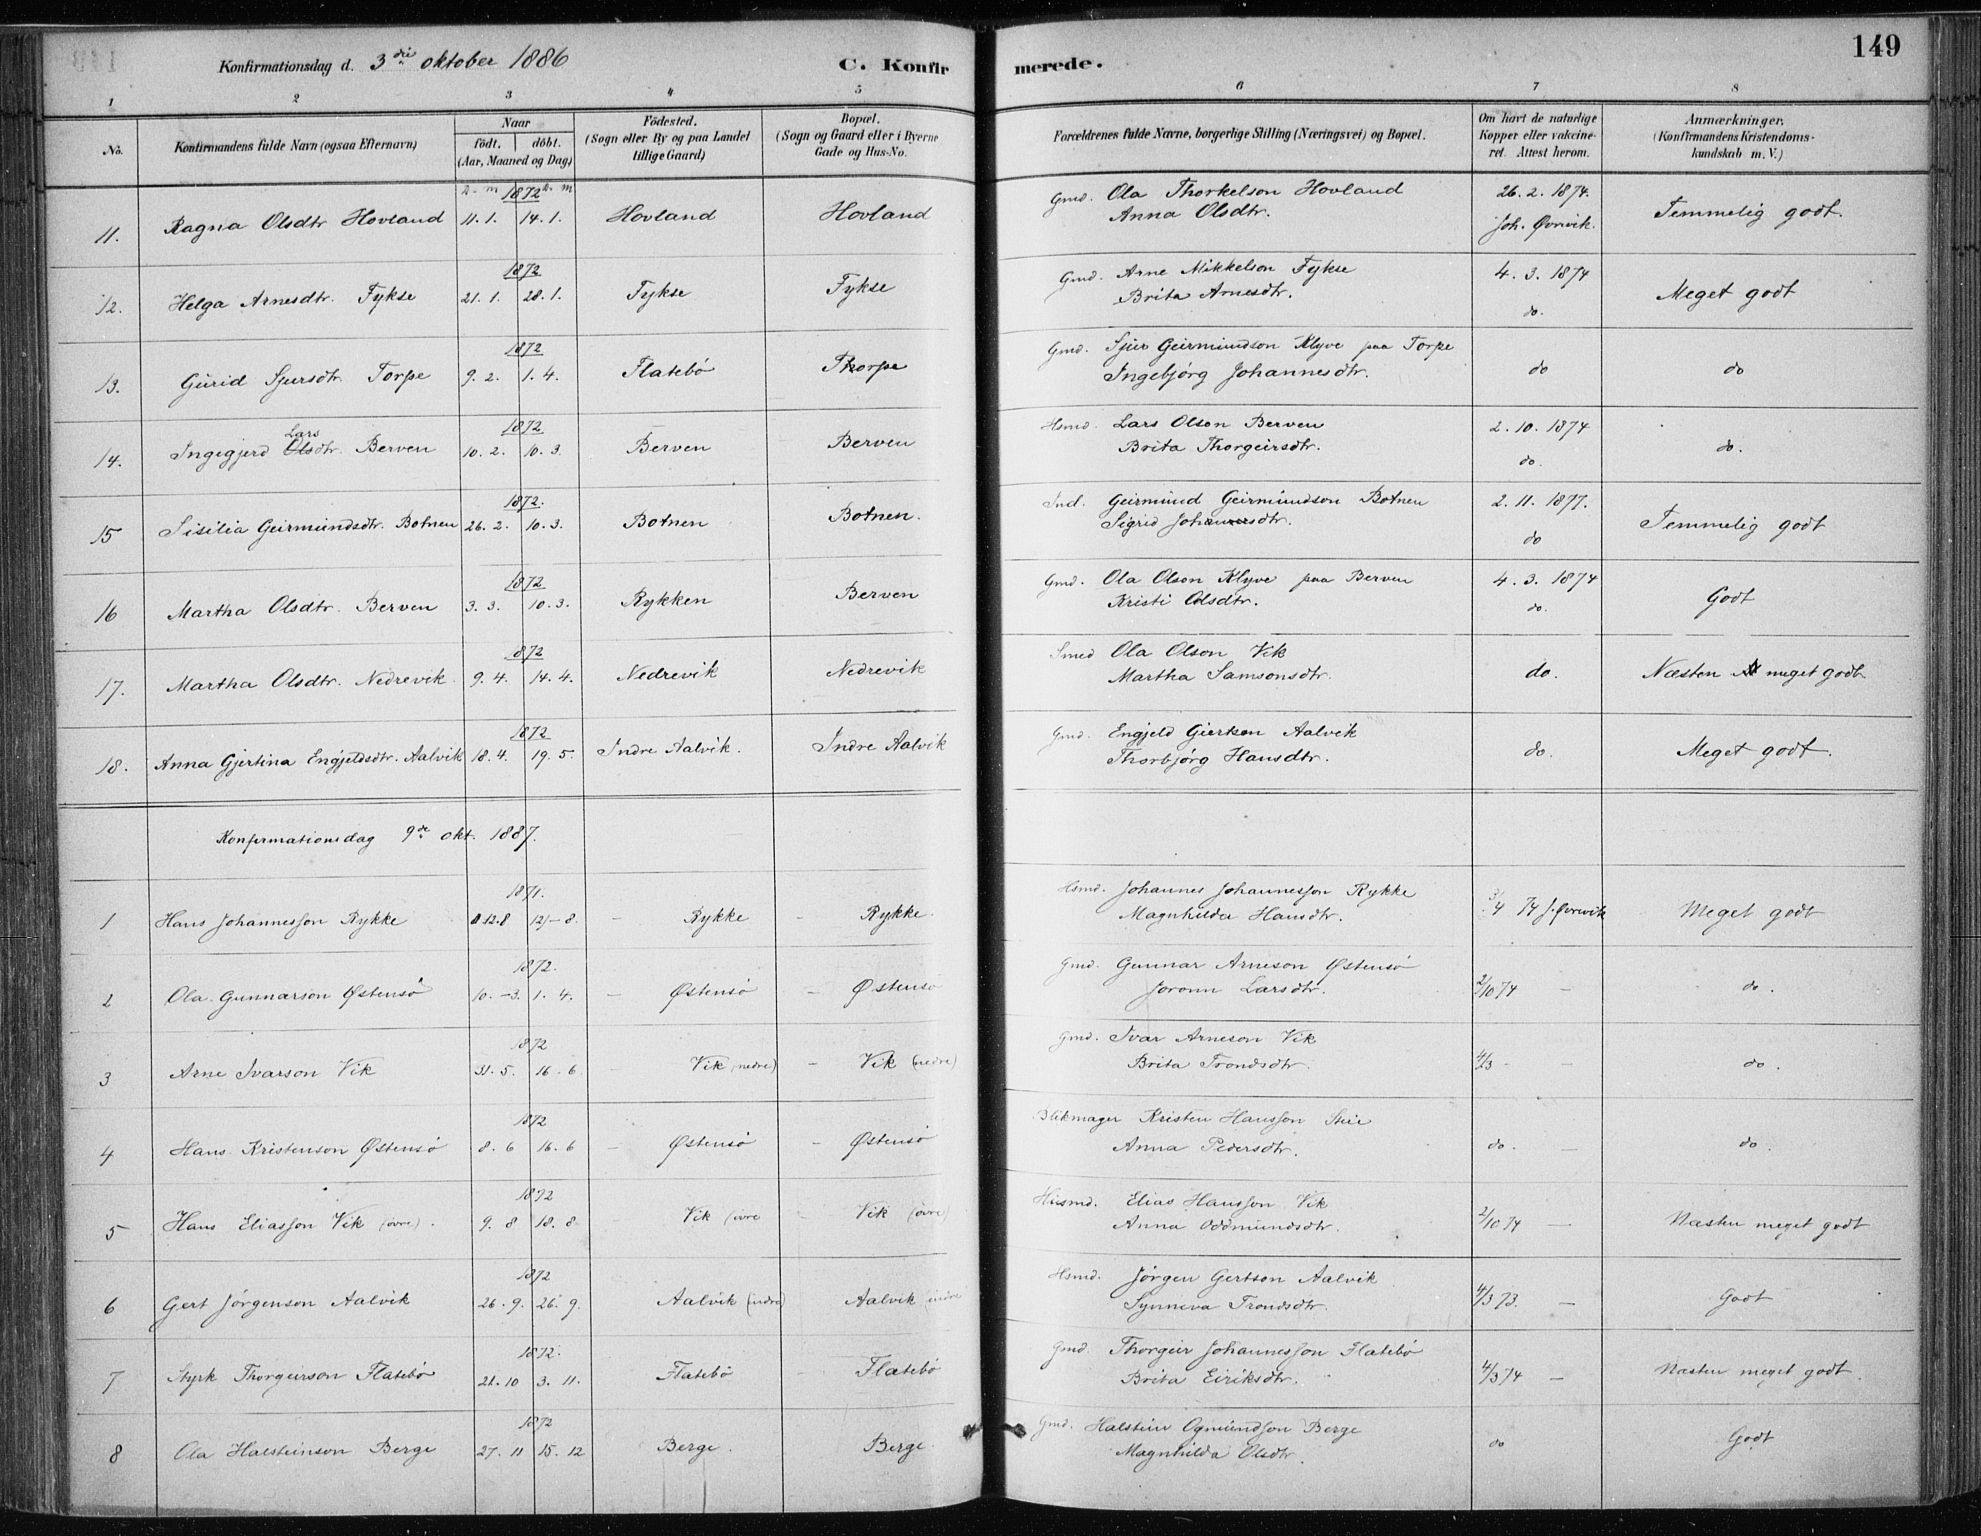 149
Konfirmationsdag d. 3die oktober 1886 C. Konfirmerede.
1 2 3 4 5 6 7 8
No. Konfirmandens fulde Navn (ogsaa Efternavn) Naar födt. döbt. (Aar, Maaned og Dag) Födested. (Sogn eller By og paa Landet tillige Gaard) Bopæl. (Sogn og Gaard eller i Byerne Gade og Hus-No. Forældrenes fulde Navne, borgerlige Stilling (Næringsvei) og Bopæl. Om havt de naturlige Kopper eller vakcineret. Attest herom. Anmærkninger, (Konfirmandens Kristendomskundskab m. V.)
D. m 1872 D. m
11. Ragna Olsdtr Hovland 11. 1. 14. 1. Hovland Hovland Gmd. Ola Thorkelson Hovland 26. 2. 1874. Temmelig godt.
Anna Olsdtr. Joh. Øvrevik.
1872
12. Helga Arnesdtr. Fykse 21. 1. 28. 1. Fykse Fykse Gmd. Arne Mikkelson Fykse 4. 3. 1874 Meget godt
Brita Arnesdtr. do.
1872
13. Gurid Sjursdtr. Torpe 9. 2. 1. 4. Flatebö Thorpe Gmd. Sjur Geirmundson Klyve paa Torpe do do
Ingebjørg Johannesdtr.
1872
Lars
14. Ingigjerd Olsdtr. Berven 10. 2. 10. 3. Berven Berven Hsmd. Lars Olson Berven 2. 10. 1874 do.
Brita Thorgeirsdtr. do.
1872.
15 Sisilia Geirmundsdtr. Botnen 26. 2. 10. 3. Botnen Botnen. Ind. Geirmund Geirmundson Botnen 2. 11. 1877. Temmelig godt
Sigrid Johannesdtr. do
1872
16 Martha Olsdtr. Berven 3. 3. 10. 3. Rykken Berven Gmd. Ola Olson Klyve paa Berven 4. 3. 1874 Godt
Kristi Olsdtr. do.
1872
17. Martha Olsdtr. Nedrevik. 9. 4. 14. 4. Nedrevik Nedrevik Smed Ola Olson Vik do. Næsten meget godt
Martha Samsonsdtr.
1872
18. Anna Gjertina Engjeldsdtr. Aalvik 18. 4. 19. 5. Indre Aalvik. Indre Aalvik Gmd. Engjeld Giertson Aalvik do. Meget godt.
Thorbjørg Hansdtr.
Konfirmationsdag 9de okt. 1887.
1871.
1 Hans Johannesson Rykke 12.8 12 - 8. - Rykke - Rykke. Hsmd. Johannes Johannesson Rykke 3/4 74 J. Øvrevik Meget godt
Magnhilda Hansdtr.
1872.
2 Ola Gunnarson Østensö 10. - 3. 1. 4. - Østensö - Østensö Gmd. Gunnar Arneson Østensö 2/10 74 - do.
Joronn Larsdtr.
1872
3 Arne Ivarson Vik 31. 5. 16. 6. - Vik (nedre) - Vik (nedre) Gmd. Ivar Arneson Vik 4/3 - - do.
Brita Trondsdtr.
1872
4 Hans Kristenson Østensö 8. 6 16. 6 - Østensö - Østensö Blikmager Kristen Hansson Steie do. - do.
Anna Pedersdtr.
1872
5 Hans Eliasson Vik (övre). 9. 8 18. 8. Vik (övre Vik (övre) Husmd. Elias Hansson Vik 2/10 74 - Næsten meget godt
Anna Oddmundsdtr.
1872
6 Gert Jörgenson Aalvik 26. 9. 26. 9. Aalvik (indre) Aalvik indre Hsmd. Jörgen Gertson Aalvik 4/3 73. - Godt
Synneva Trondsdtr.
1872.
7 Styrk Thorgeirson Flatebö 21. 10 3. 11. Flatebö Flatebö Gmd. Thorgeir Johannesson Flatebö 4/3 74 - Næsten meget godt.
Brita Eiriksdtr.
1872
8 Ola Halsteinson Berge 27. 11 15. 12 Berge. Berge. Gmd. Halstein Ogmundson Berge do Godt
Magnhilda Olsdtr.